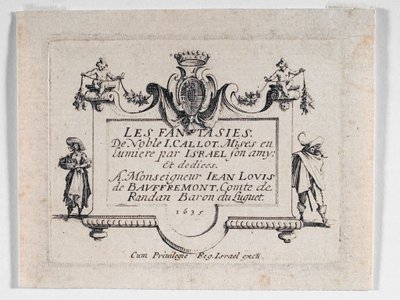 LES FANTASIES.
De Noble I. CALLOT. Mises en
lumiere par ISRAEL son amy:
Et dediees.
A. Monseigneur IEAN LOVIS
de BAVFFREMONT, Comte de
Randan Baron du Luguet.
1635
Cum Privilegie Reg. Israel excu.